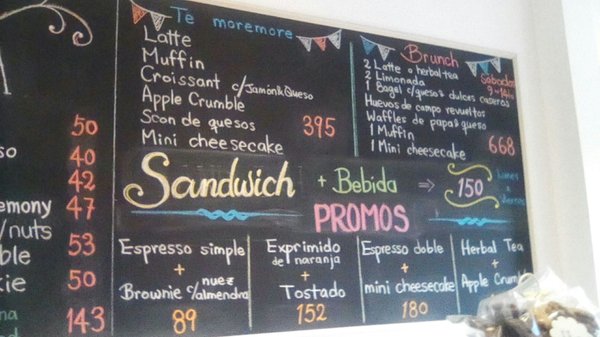 50
so
40
42
emony
47
/nuts
ble
53
kie
50
na
143
Te moremore
Latte
Muffin
Croissant c/Jamón&Queso
Apple Crumble
Scon de quesos
395
Mini cheesecake
Brunch
Sábados
2 Latte o herbal-tea
2 Limonada
1 Bagel c/queso & dulces caseros
Huevos de campo revueltos
Waffles de papa & queso
1 Muffin
1 Mini cheesecake
668
Sandwich + Bebida ⇒ 150
Lunes a Viernes
PROMOS
Espresso simple
+
Brownie c/nuez almendra
89
Exprimido de naranja
+
Tostado
152
Espresso doble
+
mini cheesecake
180
Herbal Tea
+
Apple Crumb